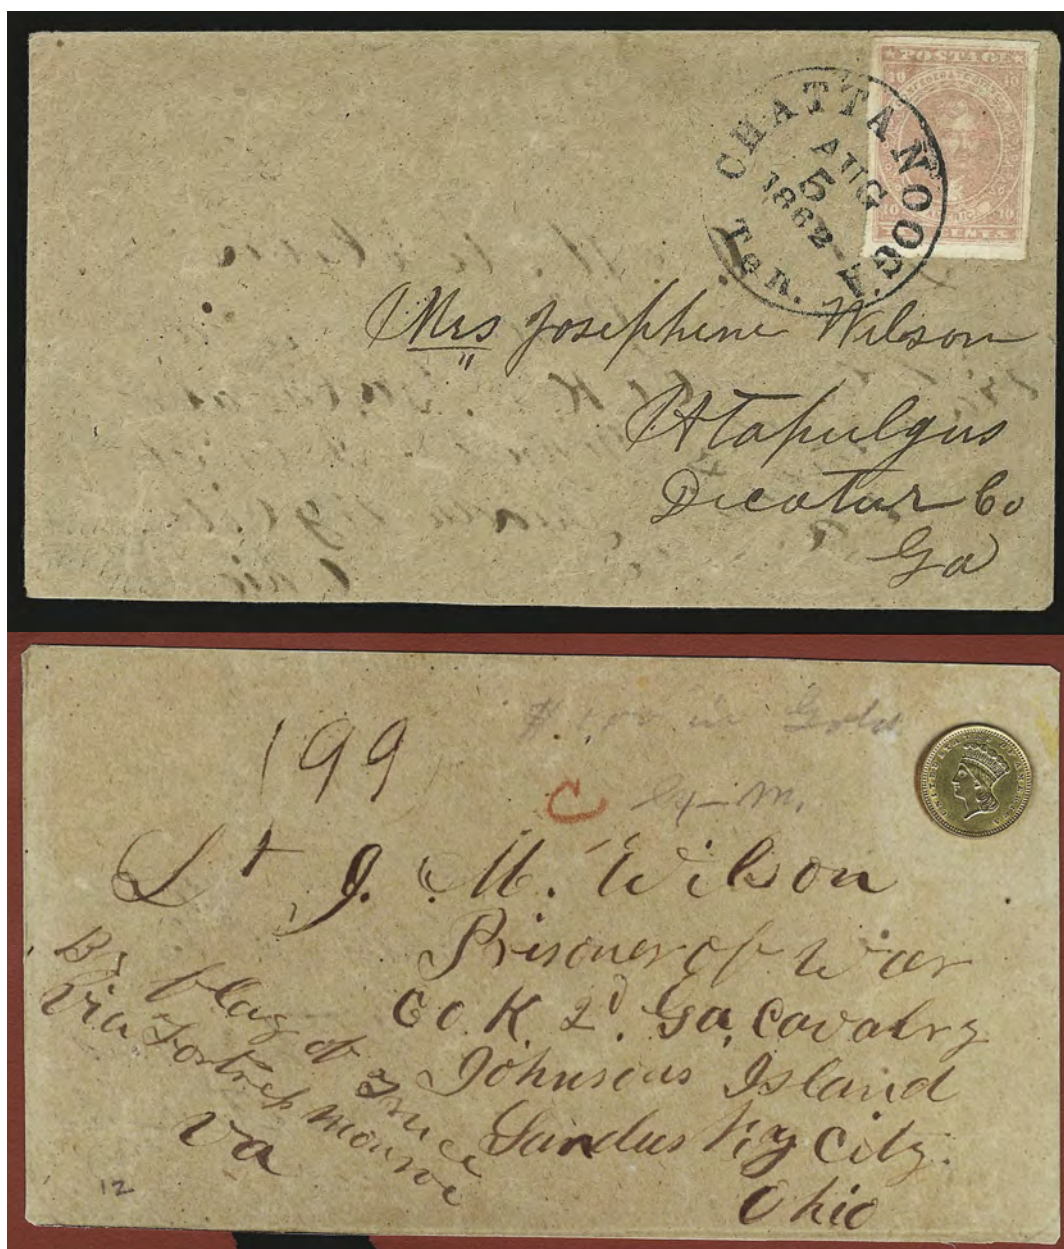 POSTAGE
10 10
10 10
CHATTANOOGA.
AUG
5
1862
Ten.
Mrs Josephine Wilson
Attapulgus
Decatur Co
Ga
$1.00 in Gold
199
C
Ex-M.
UNITED STATES OF AMERICA
Lt J. M. Wilson
Prisoner of War
Co. K. 2d. Ga. Cavalry
Johnsons Island
Sandusky City.
Ohio
By flag of Truce
Via Fortress Monroe
Va
12